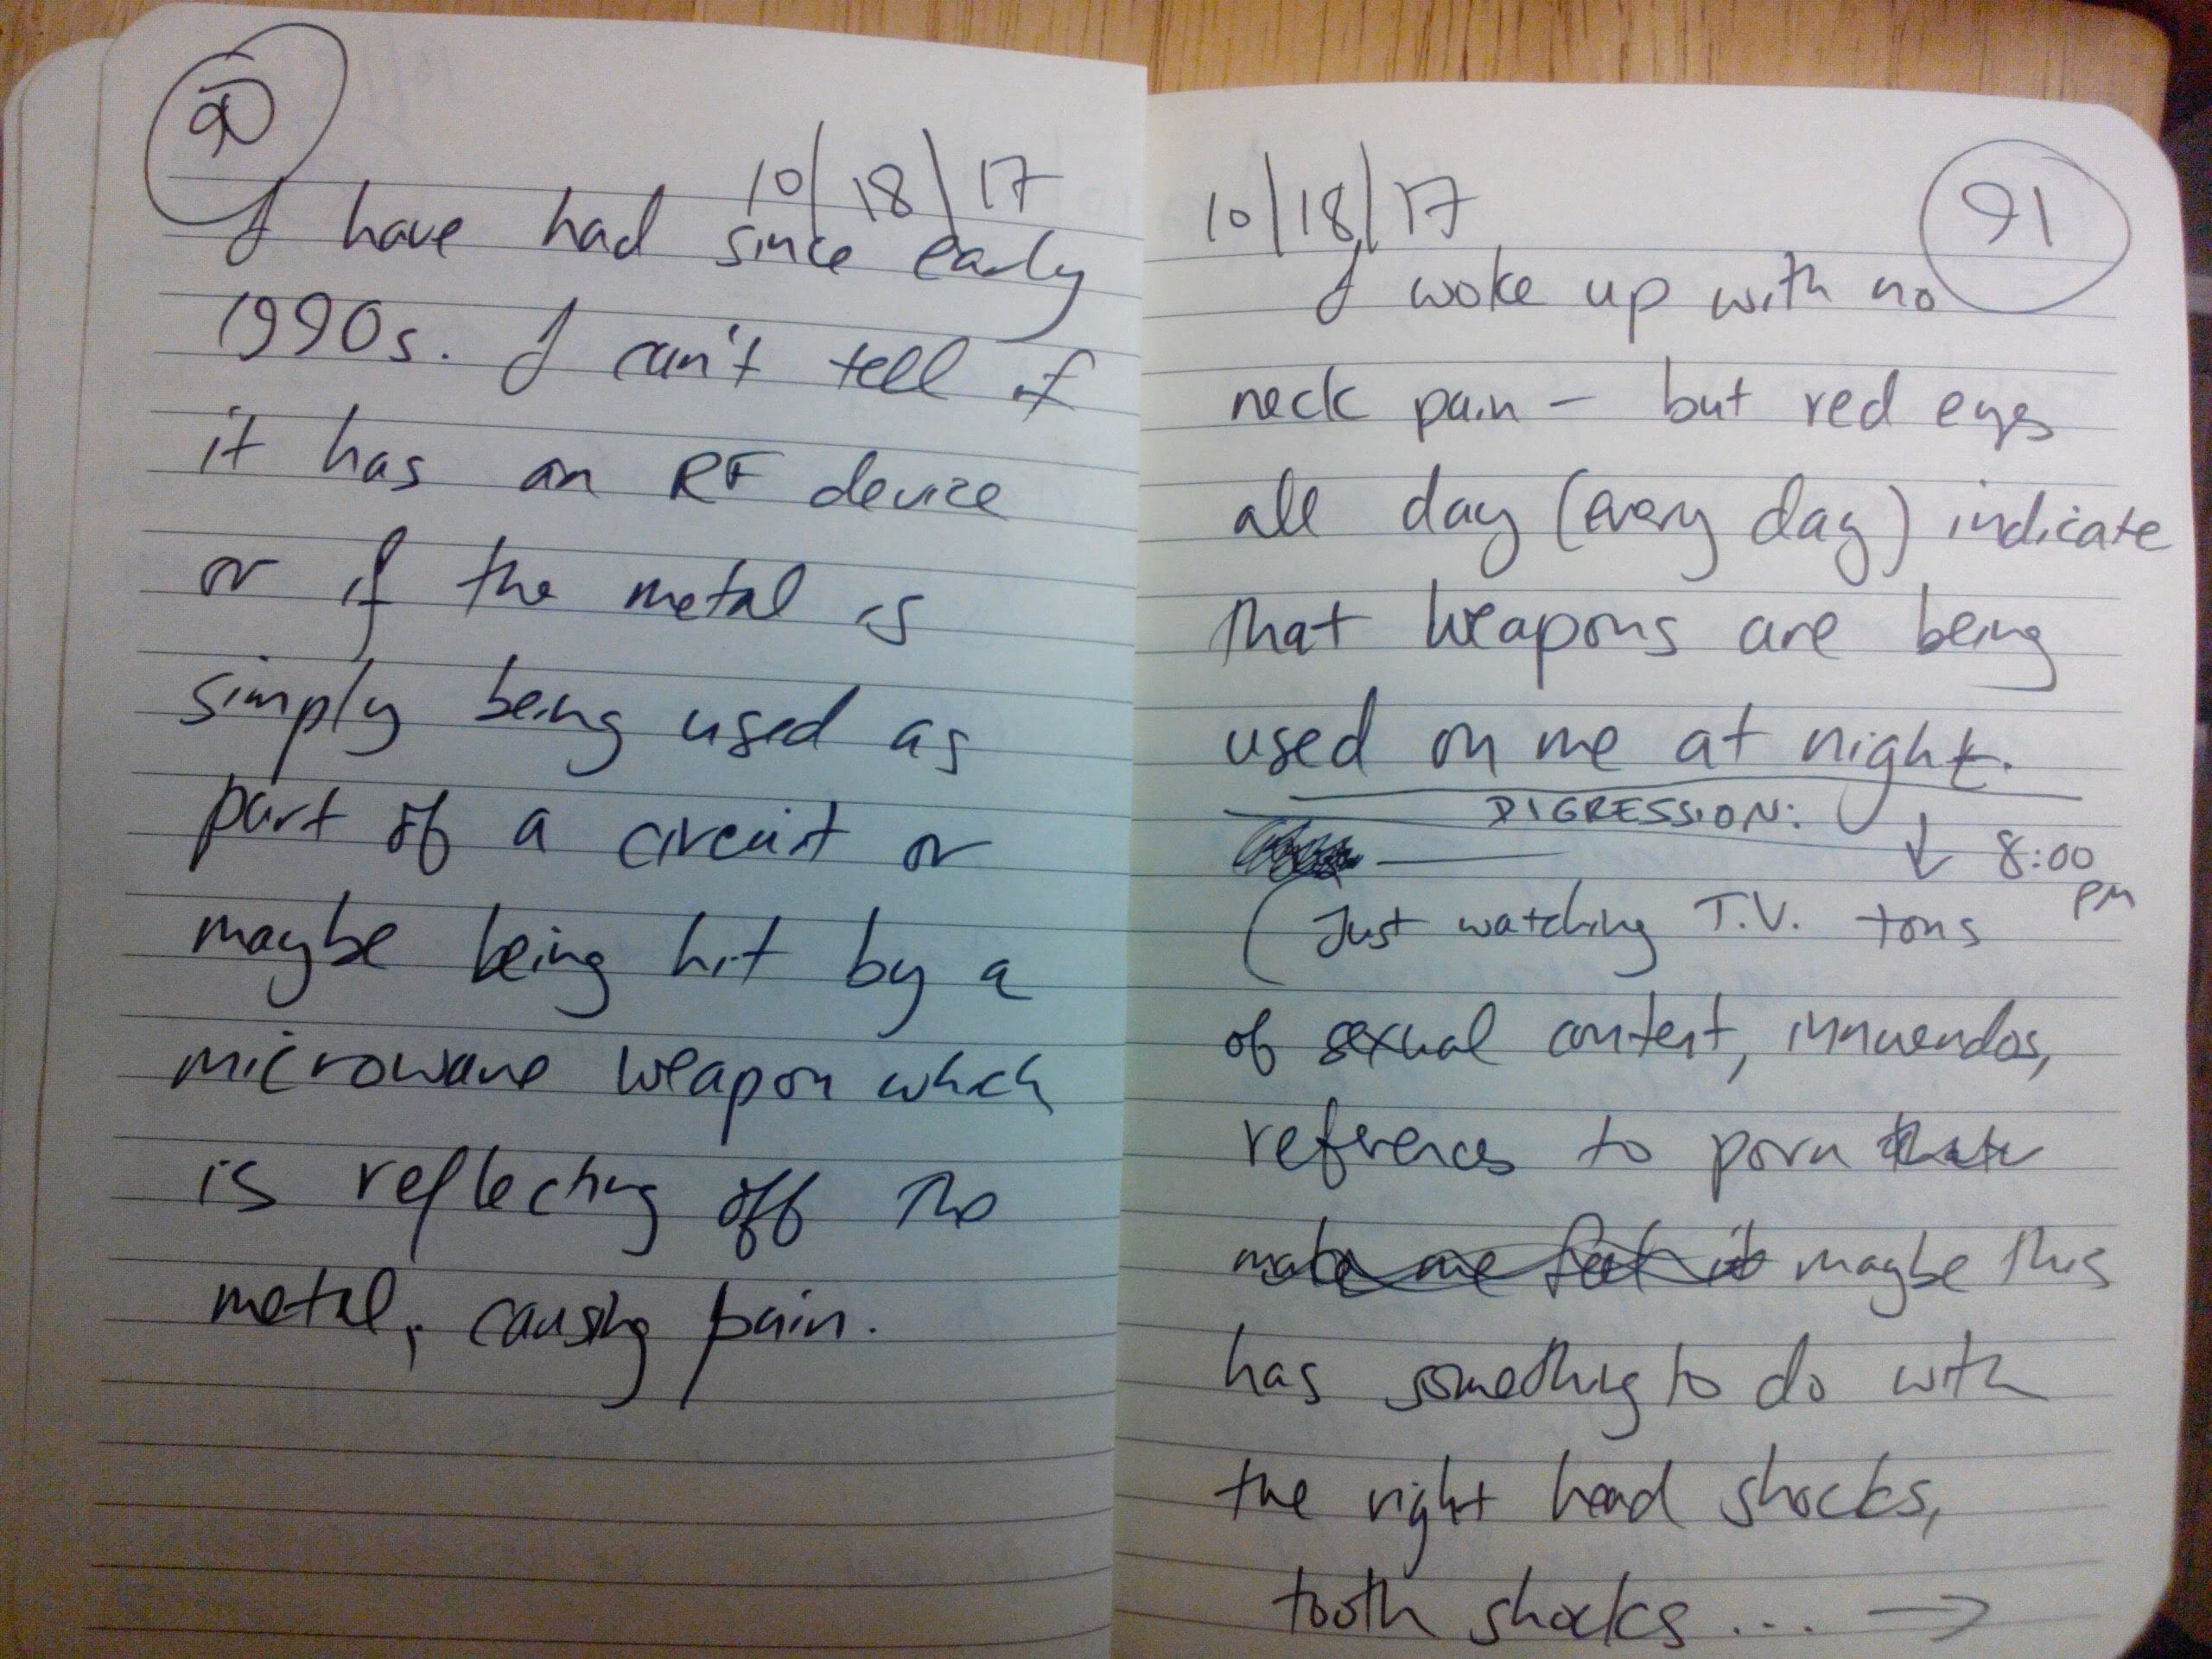 90
10/18/17
I have had since early
1990s. I can't tell if
it has an RF device
or if the metal is
simply being used as
part of a circuit or
maybe being hit by a
microwave weapon which
is reflecting off the
metal, causing pain.
91
10/18/17
I woke up with no
neck pain - but red eyes
all day (every day) indicate
that weapons are being
used on me at night.
DIGRESSION:
↓ 8:00 PM
(Just watching T.V. tons
of sexual content, innuendos,
references to porn
make me feel it maybe this
has something to do with
the right head shocks,
tooth shocks... →